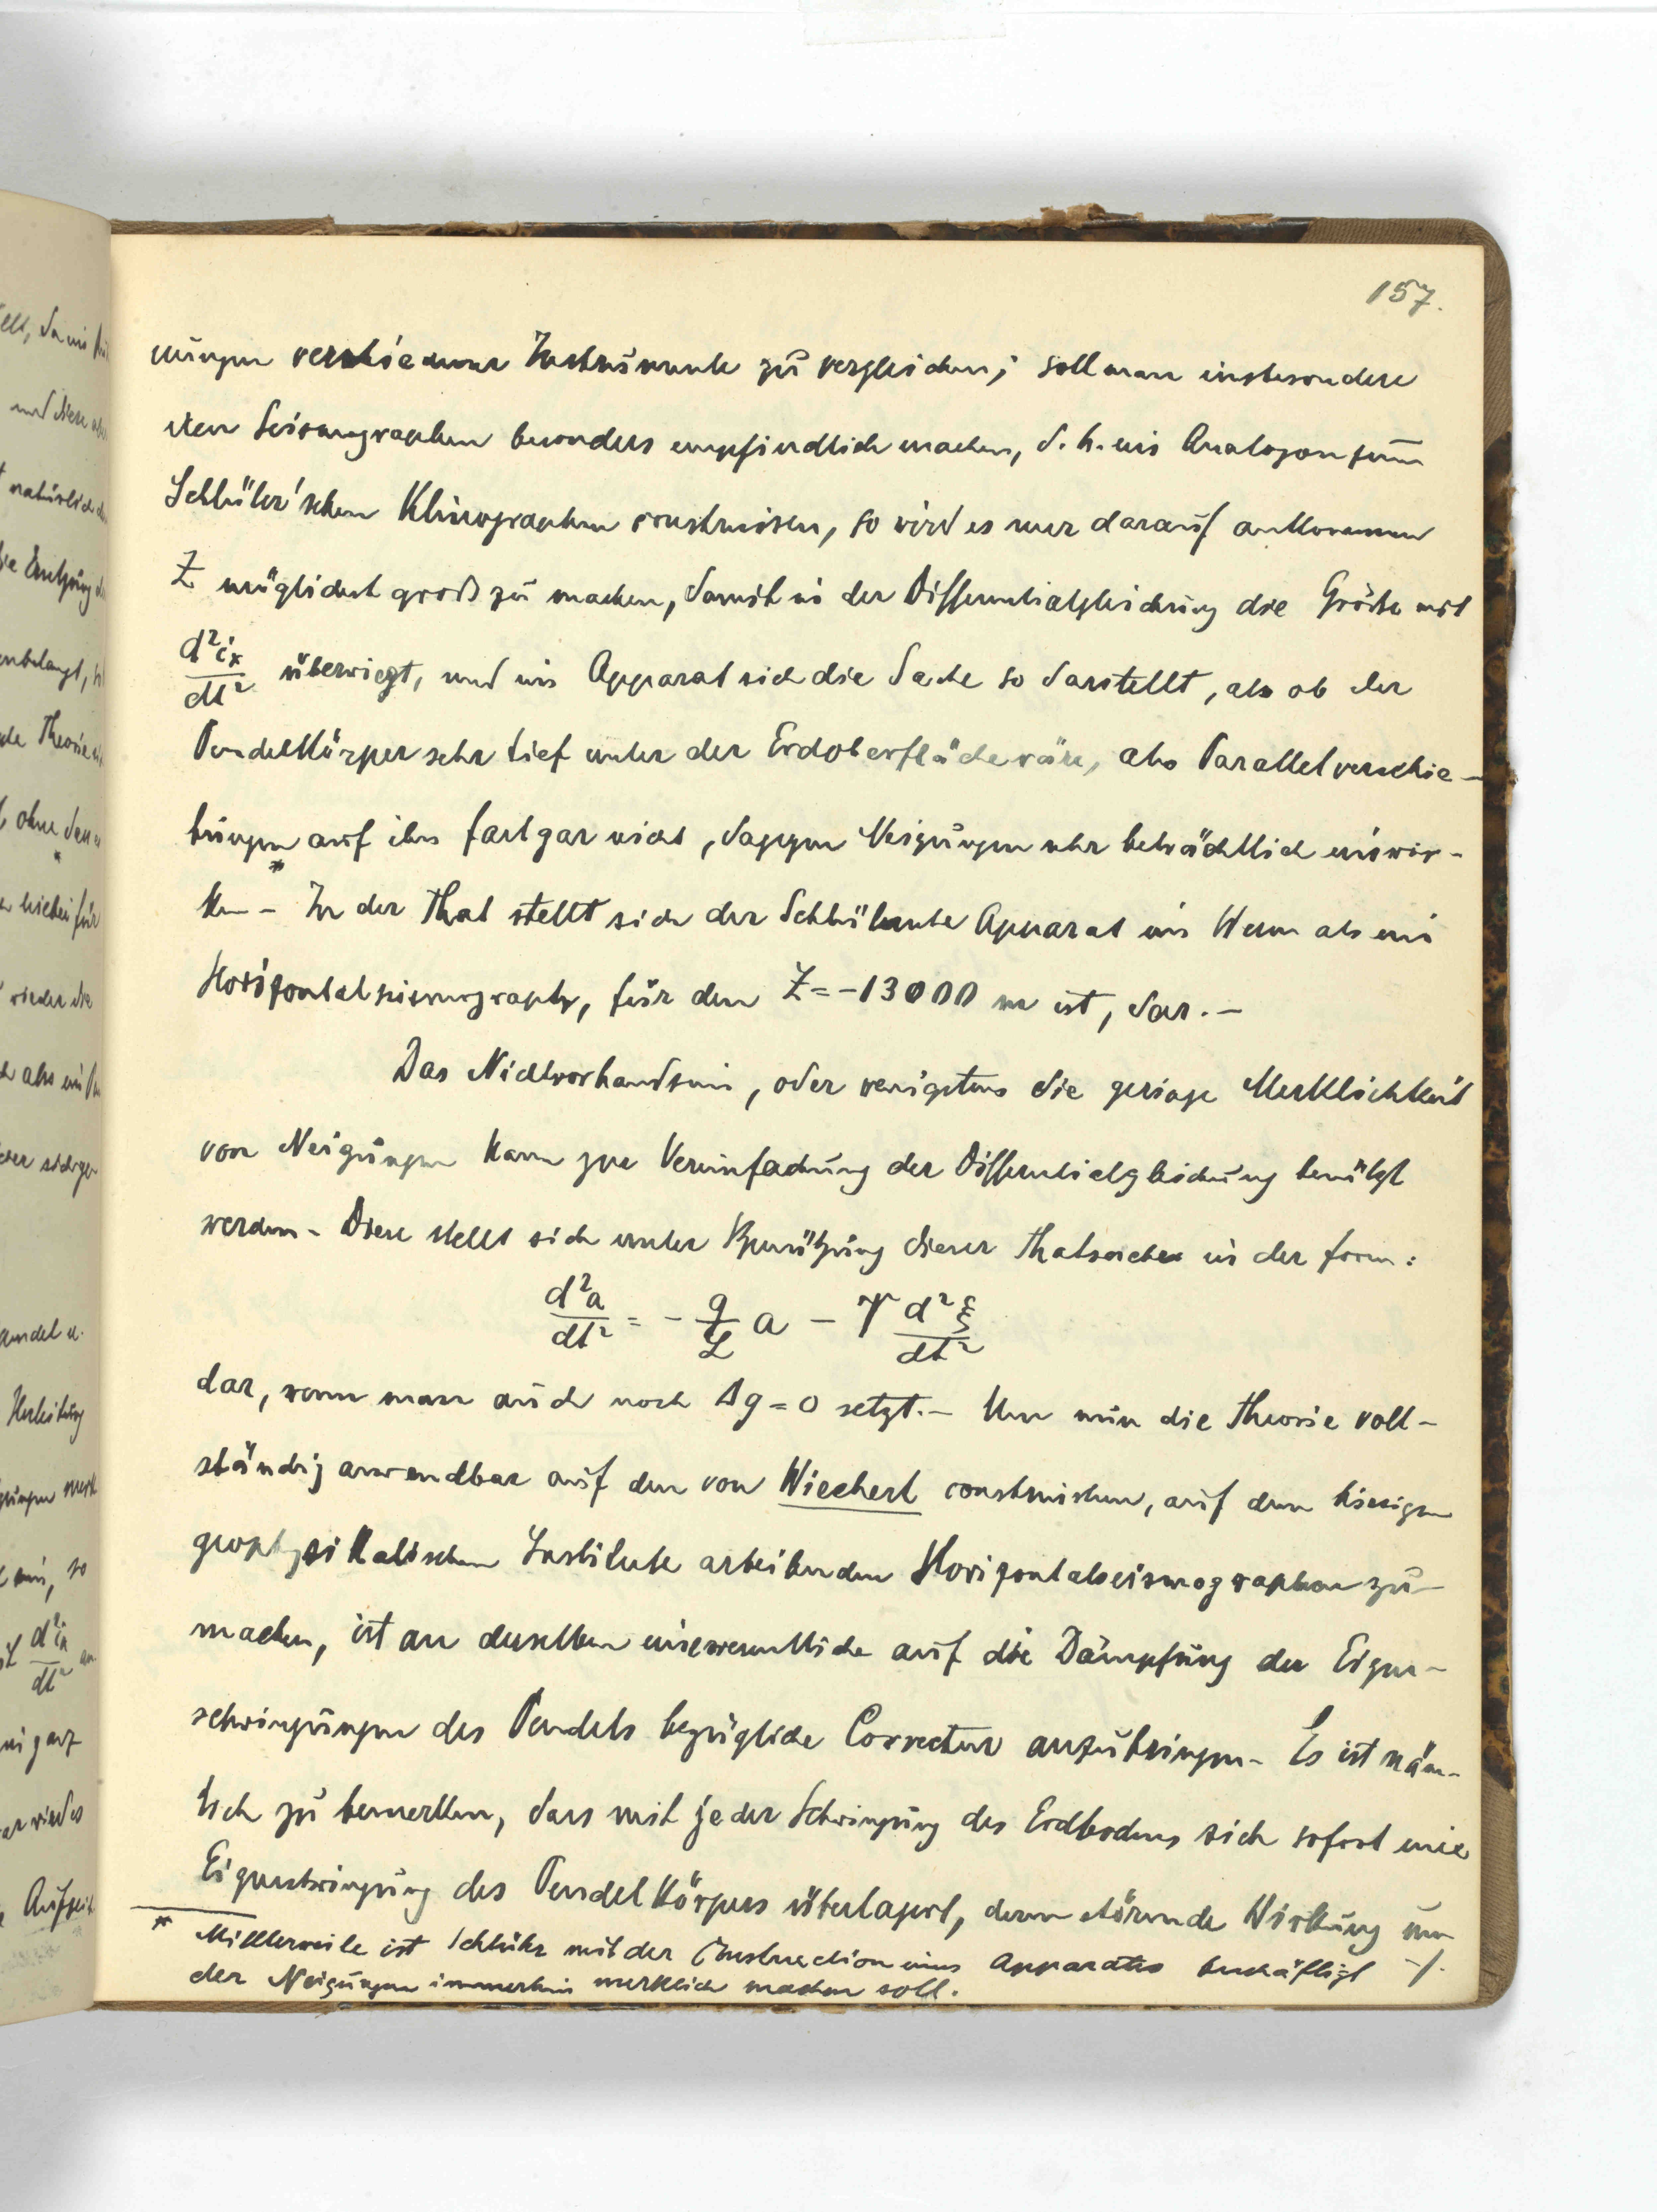 157.
nungen verschiedener Instrumente zu vergleichen; soll man insbesondere
den Seismographen besonders empfindlich machen, d. h. ein Analogon zum
Schlüter'schen Klinographen construiren, so wird es nur darauf ankommen
Z möglichst groß zu machen, damit in der Differentialgleichung die Größe mit
d²iₓ/dt² überwiegt, und im Apparat sich die Sache so darstellt, als ob der
Pendelkörper sehr tief unter der Erdoberfläche wäre, also Parallelverschie-
bungen auf ihn fast gar nicht, dagegen Neigungen sehr beträchtlich einwir-
ken *- In der That stellt sich der Schlütersche Apparat im Wesen als ein
Horizontalseismograph, für den Z = -13000 m ist, dar.-
Das Nichtvorhandsein, oder wenigstens die geringe Merklichkeit
von Neigungen kann zur Vereinfachung der Differentialgleichung benützt
werden- Diese stellt sich unter Benützung dieser Thatsache in der Form:
d²a/dt² = - g/L a - V d²ξ/dt²
dar, wenn man auch noch Δg = 0 setzt.- Um nun die Theorie voll-
ständig anwendbar auf den von Wiechert construirten, auf dem hiesigen
geophysikalischen Institute arbeitenden Horizontalseismographen zu
machen, ist an derselben eine wesentliche auf die Dämpfung der Eigen-
schwingungen des Pendels bezügliche Correctur anzubringen- Es ist näm-
lich zu bemerken, dass mit jeder Schwingung des Erdbodens sich sofort eine
Eigenschwingung des Pendelkörpers überlagert, deren störende Wirkung um
* Mittlerweile ist Schlüter mit der Construction eines Apparates beschäftigt -/.
der Neigungen immerhin merklich machen soll.